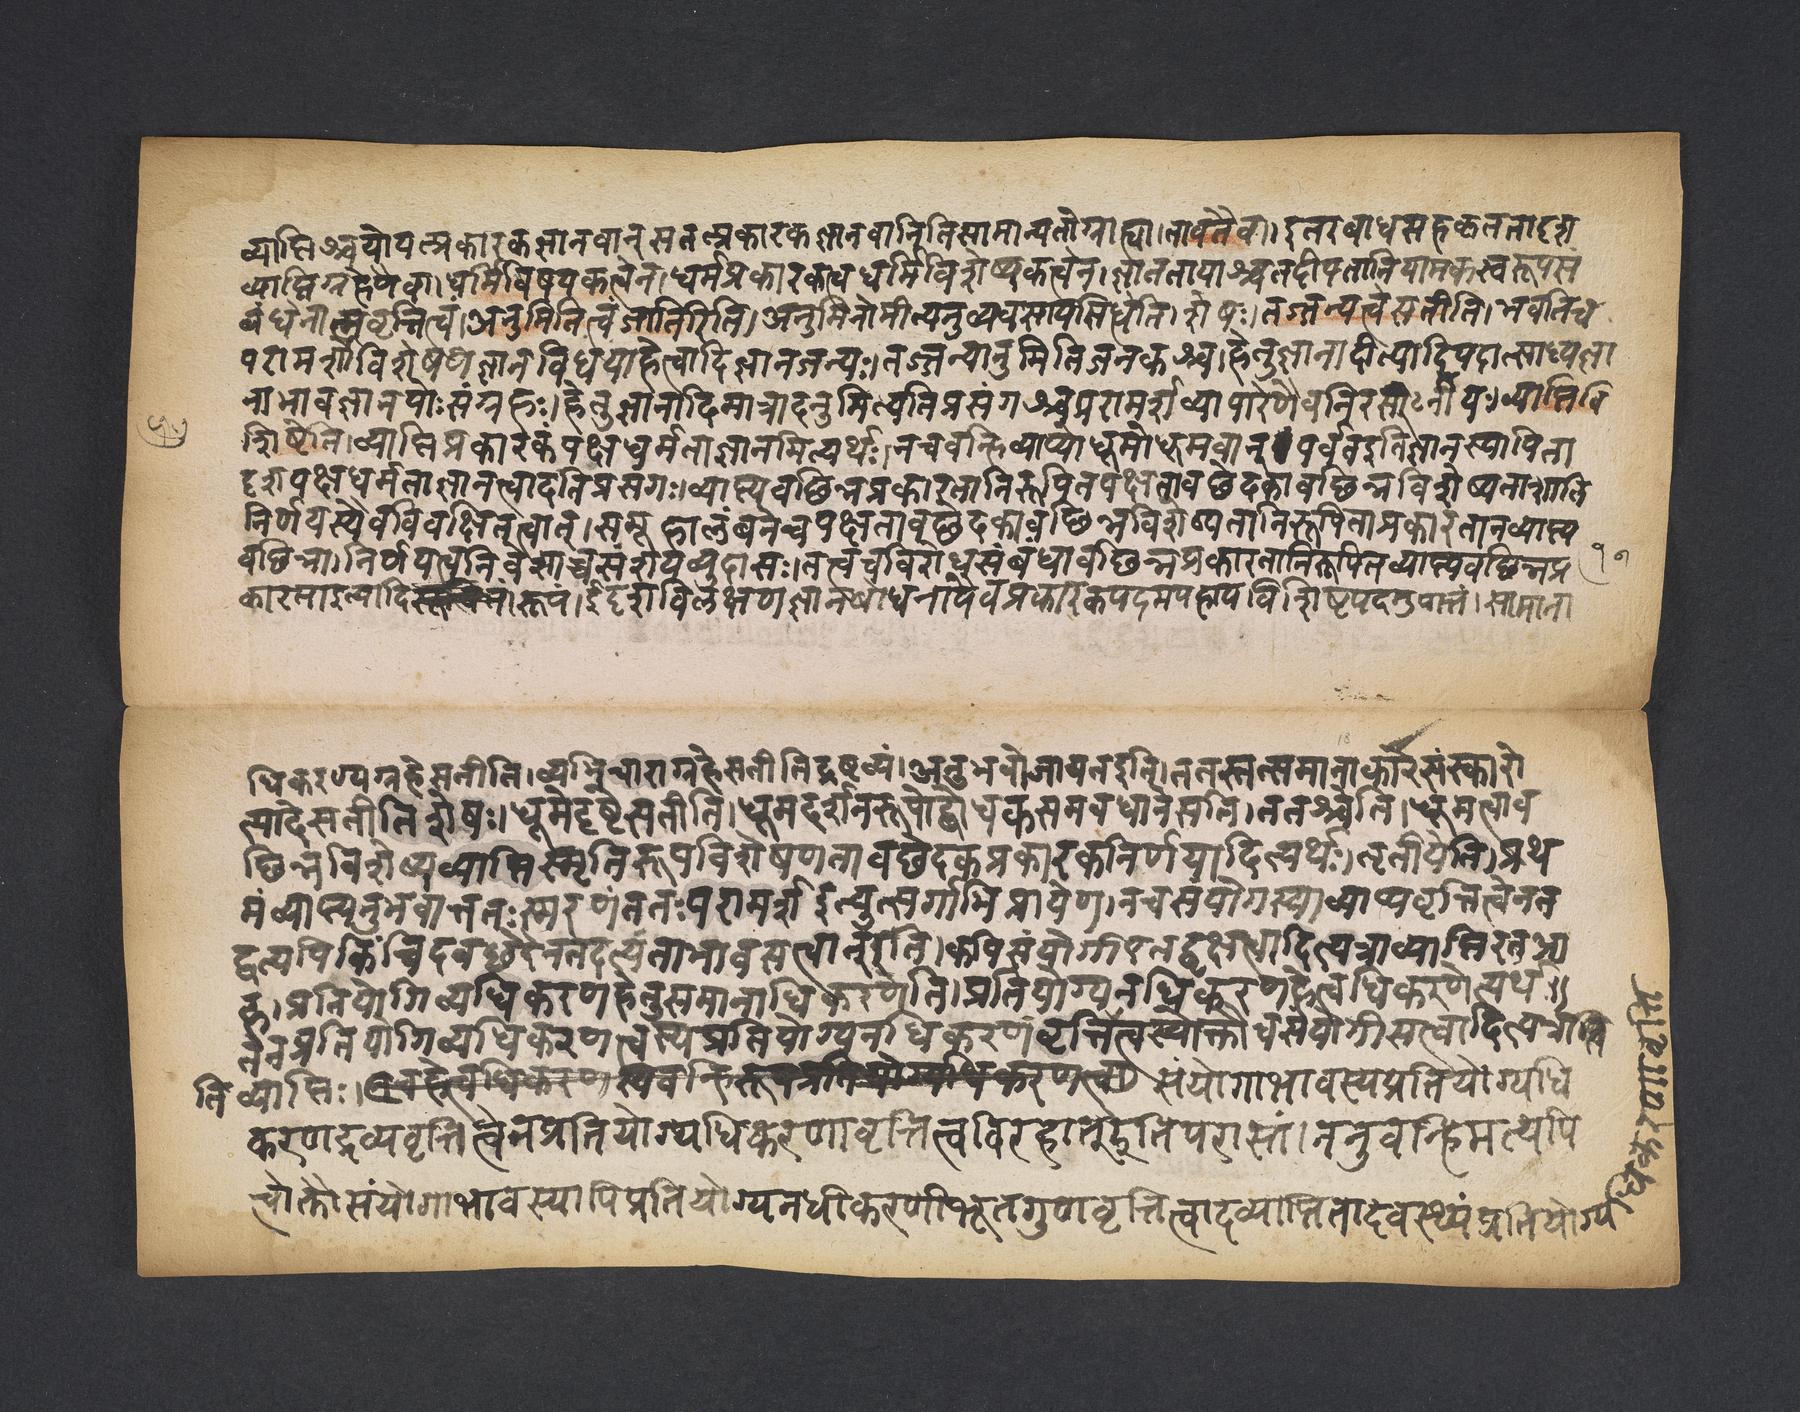 व्याप्तिश्चयोयत्प्रकारकज्ञानवान्सतत्प्रकारकज्ञानवानितिसामान्यतोग्राह्या।तावतैवा।इतरबाधसहकृततादृश
व्याप्तिग्रहेणैव।धर्मिविषयकत्वेन।धर्मप्रकारकत्वधर्मिविशेष्यकत्वेन।ज्ञानतायाश्चतदीयतानियामकस्वरूपसं
बंधेनात्मवृत्तित्वं।अनुमितित्वंजातिरिति।अनुमिनोमीत्यनुव्यवसायसिद्धेति।शेषः।तज्जन्यत्वेसतीति।भवतिच
परामर्शोविशेषणज्ञानविधयाहेत्वादिज्ञानजन्यः।तज्जन्यानुमितिजनकश्च।हेतुज्ञानादीत्यादिपदात्साध्यज्ञा
नाभावज्ञानयोःसंग्रहः।हेतुज्ञानादिमात्रादनुमित्यतिप्रसंगश्चपरामर्शव्यापारेणैवनिरसनीयः।व्याप्तिवि
शिष्टेति।व्याप्तिप्रकारकंपक्षधर्मताज्ञानमित्यर्थः।नचवन्हिव्याप्योधूमोधूमवान्पर्वतइतिज्ञानस्यापिता
दृशपक्षधर्मताज्ञानत्वादतिप्रसंगः।व्याप्त्यवछिन्नप्रकारतानिरूपितपक्षतावछेदकावछिन्नविशेष्यताशालि
निर्णयस्यैवविवक्षितत्वात्।समूहालंबनेचपक्षतावछेदकावछिन्नविशेष्यतानिरूपिताप्रकारतानव्याप्त्य
वछिन्ना।निर्णयत्वनिवेसाच्चसंशयव्युदासः।तत्वंचविरोधसंबंधावछिन्नप्रकारतानिरूपितव्याप्त्यवछिन्नप्र
कारताइत्यादिरूप।ईदृशविलक्षणज्ञानबोधनायैवप्रकारकपदमपहायविशिष्टपदमुपात्तं।सामाना
१७
धिकरण्यग्रहेसतीति।व्यभिचाराग्रहेसतीतिद्रष्टव्यं।अनुभवोजायतइति।ततस्तत्समानाकारसंस्कारो
त्पादेसतीतिशेषः।धूमेदृष्टेसतीति।धूमदर्शनरूपोद्बोधकसमवधानेसति।ततश्चेति।धूमत्वाव
छिन्नविशेष्यव्याप्तिस्मृतिरूपविशेषणतावछेदकप्रकारकनिर्णयादित्यर्थः।तृतीयेति।प्रथ
मंव्याप्त्यनुभवात्ततःस्मरणंततःपरामर्शइत्युत्सर्गाभिप्रायेण।नचसंयोगस्याव्याप्यवृत्तित्वेनत
द्वत्यपिकिंचिदवछेदेनतदत्यंताभावसत्वात्इति।कपिसंयोगीएतद्वृक्षत्वादित्यत्राव्याप्तिरतआ
ह।प्रतियोगिव्यधिकरणहेतुसमानाधिकरणेति।प्रतियोग्यनधिकरणहेत्वधिकरणेत्यर्थः॥
तेनप्रतियोगिव्यधिकरणत्वस्यप्रतियोग्यनधिकरणवृत्तित्वस्योक्तौचसंयोगीसत्वादित्यत्रा
तिव्याप्तिः।संयोगाभावस्यप्रतियोग्यधि
करणद्रव्यवृत्तित्वेनप्रतियोग्यधिकरणावृत्तित्वविरहात्इतिपरास्तं।ननुवन्हिमत्यपि
चोक्तौसंयोगाभावस्यापिप्रतियोग्यनधीकरणीभूतगुणवृत्तित्वादव्याप्तितादवस्थ्यंप्रतियोग्य
धिकरणावृत्ति